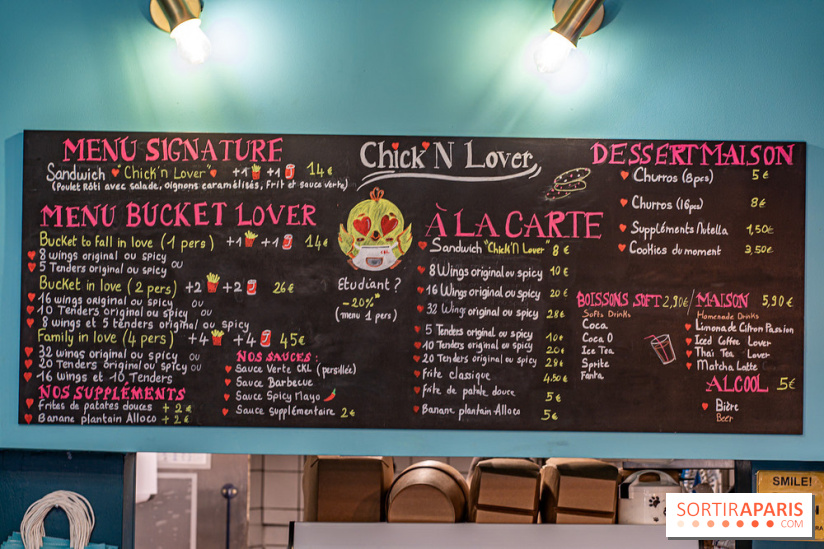 MENU SIGNATURE
Sandwich "Chick'n Lover" +1 +1 14€
(Poulet Rôti avec salade, oignons caramélisés, Frit et sauce verte)
MENU BUCKET LOVER
Bucket to fall in love (1 pers) +1 +1 14€
8 wings original ou spicy
5 Tenders original ou spicy ou
Bucket in love (2 pers) +2 +2 26€
16 wings original ou spicy ou
10 Tenders original ou spicy ou
8 wings et 5 tenders original ou spicy
Family in love (4 pers) +4 +4 45€
32 wings original ou spicy ou
20 Tenders original ou spicy ou
16 Wings et 10 Tenders
NOS SUPPLEMENTS
Frites de patates douces + 2€
Banane plantain Alloco + 2€
NOS SAUCES :
Sauce Verte CKL (persillée)
Sauce Barbecue
Sauce Spicy Mayo
Sauce supplémentaire 2€
Chick'N Lover
Etudiant ?
-20%*
(menu 1 pers)
À LA CARTE
Sandwich "Chick'N Lover" 8€
8 Wings original ou spicy 10€
16 Wings original ou spicy 20€
32 Wing original ou spicy 28€
5 Tenders original ou spicy 10€
10 Tenders original ou spicy 20€
20 Tenders original ou spicy 28€
Frite classique 4,50€
Frite de patate douce 5€
Banane plantain Alloco 5€
DESSERT MAISON
Churros (8pcs) 5€
Churros (16pcs) 8€
Suppléments Nutella 1,50€
Cookies du moment 3,50€
BOISSONS SOFT 2,90€ / MAISON 5,90€
Softs Drinks
Coca
Coca 0
Ice Tea
Sprite
Fanta
Homemade Drinks
Limonade Citron Passion
Iced Coffee Lover
Thaï Tea Lover
Matcha Latte
ALCOOL 5€
Bière
Beer
SMILE!
SORTIRAPARIS
.COM